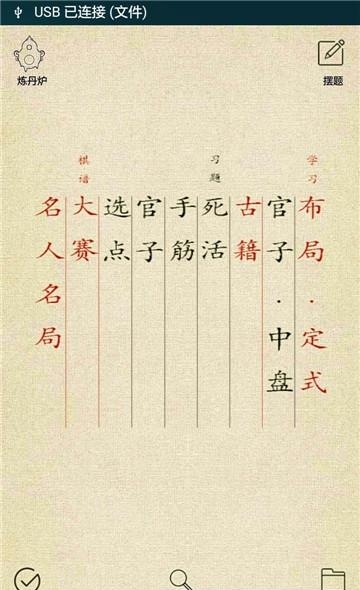 USB 已连接 (文件)
炼丹炉
摆题
学习
布局·定式
官子·中盘
古籍
习题
死活
手筋
官子
选点
棋谱
大赛
名人名局